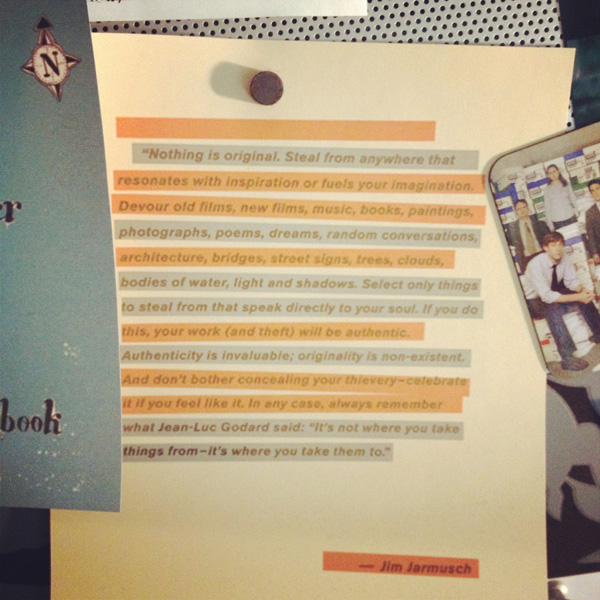 N
er
book
“Nothing is original. Steal from anywhere that
resonates with inspiration or fuels your imagination.
Devour old films, new films, music, books, paintings,
photographs, poems, dreams, random conversations,
architecture, bridges, street signs, trees, clouds,
bodies of water, light and shadows. Select only things
to steal from that speak directly to your soul. If you do
this, your work (and theft) will be authentic.
Authenticity is invaluable; originality is non-existent.
And don’t bother concealing your thievery–celebrate
it if you feel like it. In any case, always remember
what Jean-Luc Godard said: “It’s not where you take
things from–it’s where you take them to.”
— Jim Jarmusch